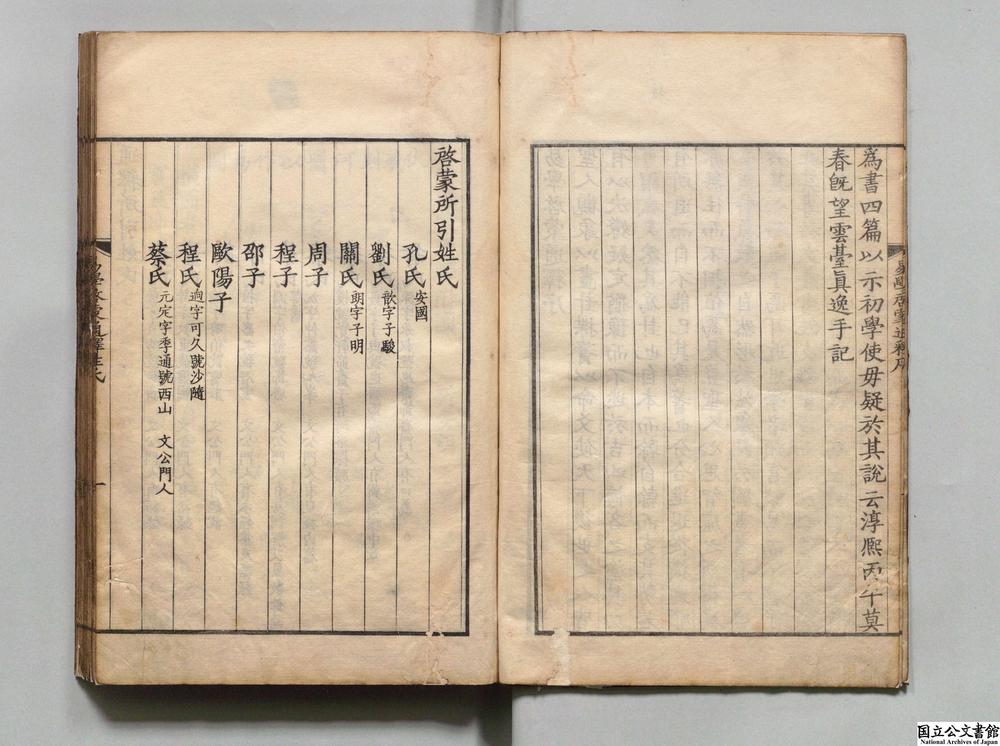 為書四篇以示初學使毋疑於其說云淳熈丙午莫
春旣望雲臺眞逸手記
啓蒙所引姓氏
孔氏安國
劉氏歆字子駿
關氏朗字子明
周子
程子
邵子
歐陽子
程氏逈字可久號沙隨
蔡氏元定字季通號西山 文公門人
一
国立公文書館
National Archives of Japan